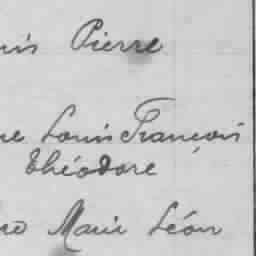 Pierre
Louis François
Théodore
Marie Léon